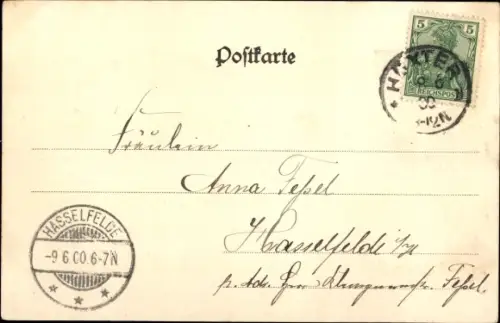 Postkarte
5 5
REICHSPOST
HÖXTER
8 6
00
-12N
Fräulein
Anna Feßel
Hasselfelde
p. Adr. Feßel
HASSELFELDE
-9 6.00.6-7N
* * *